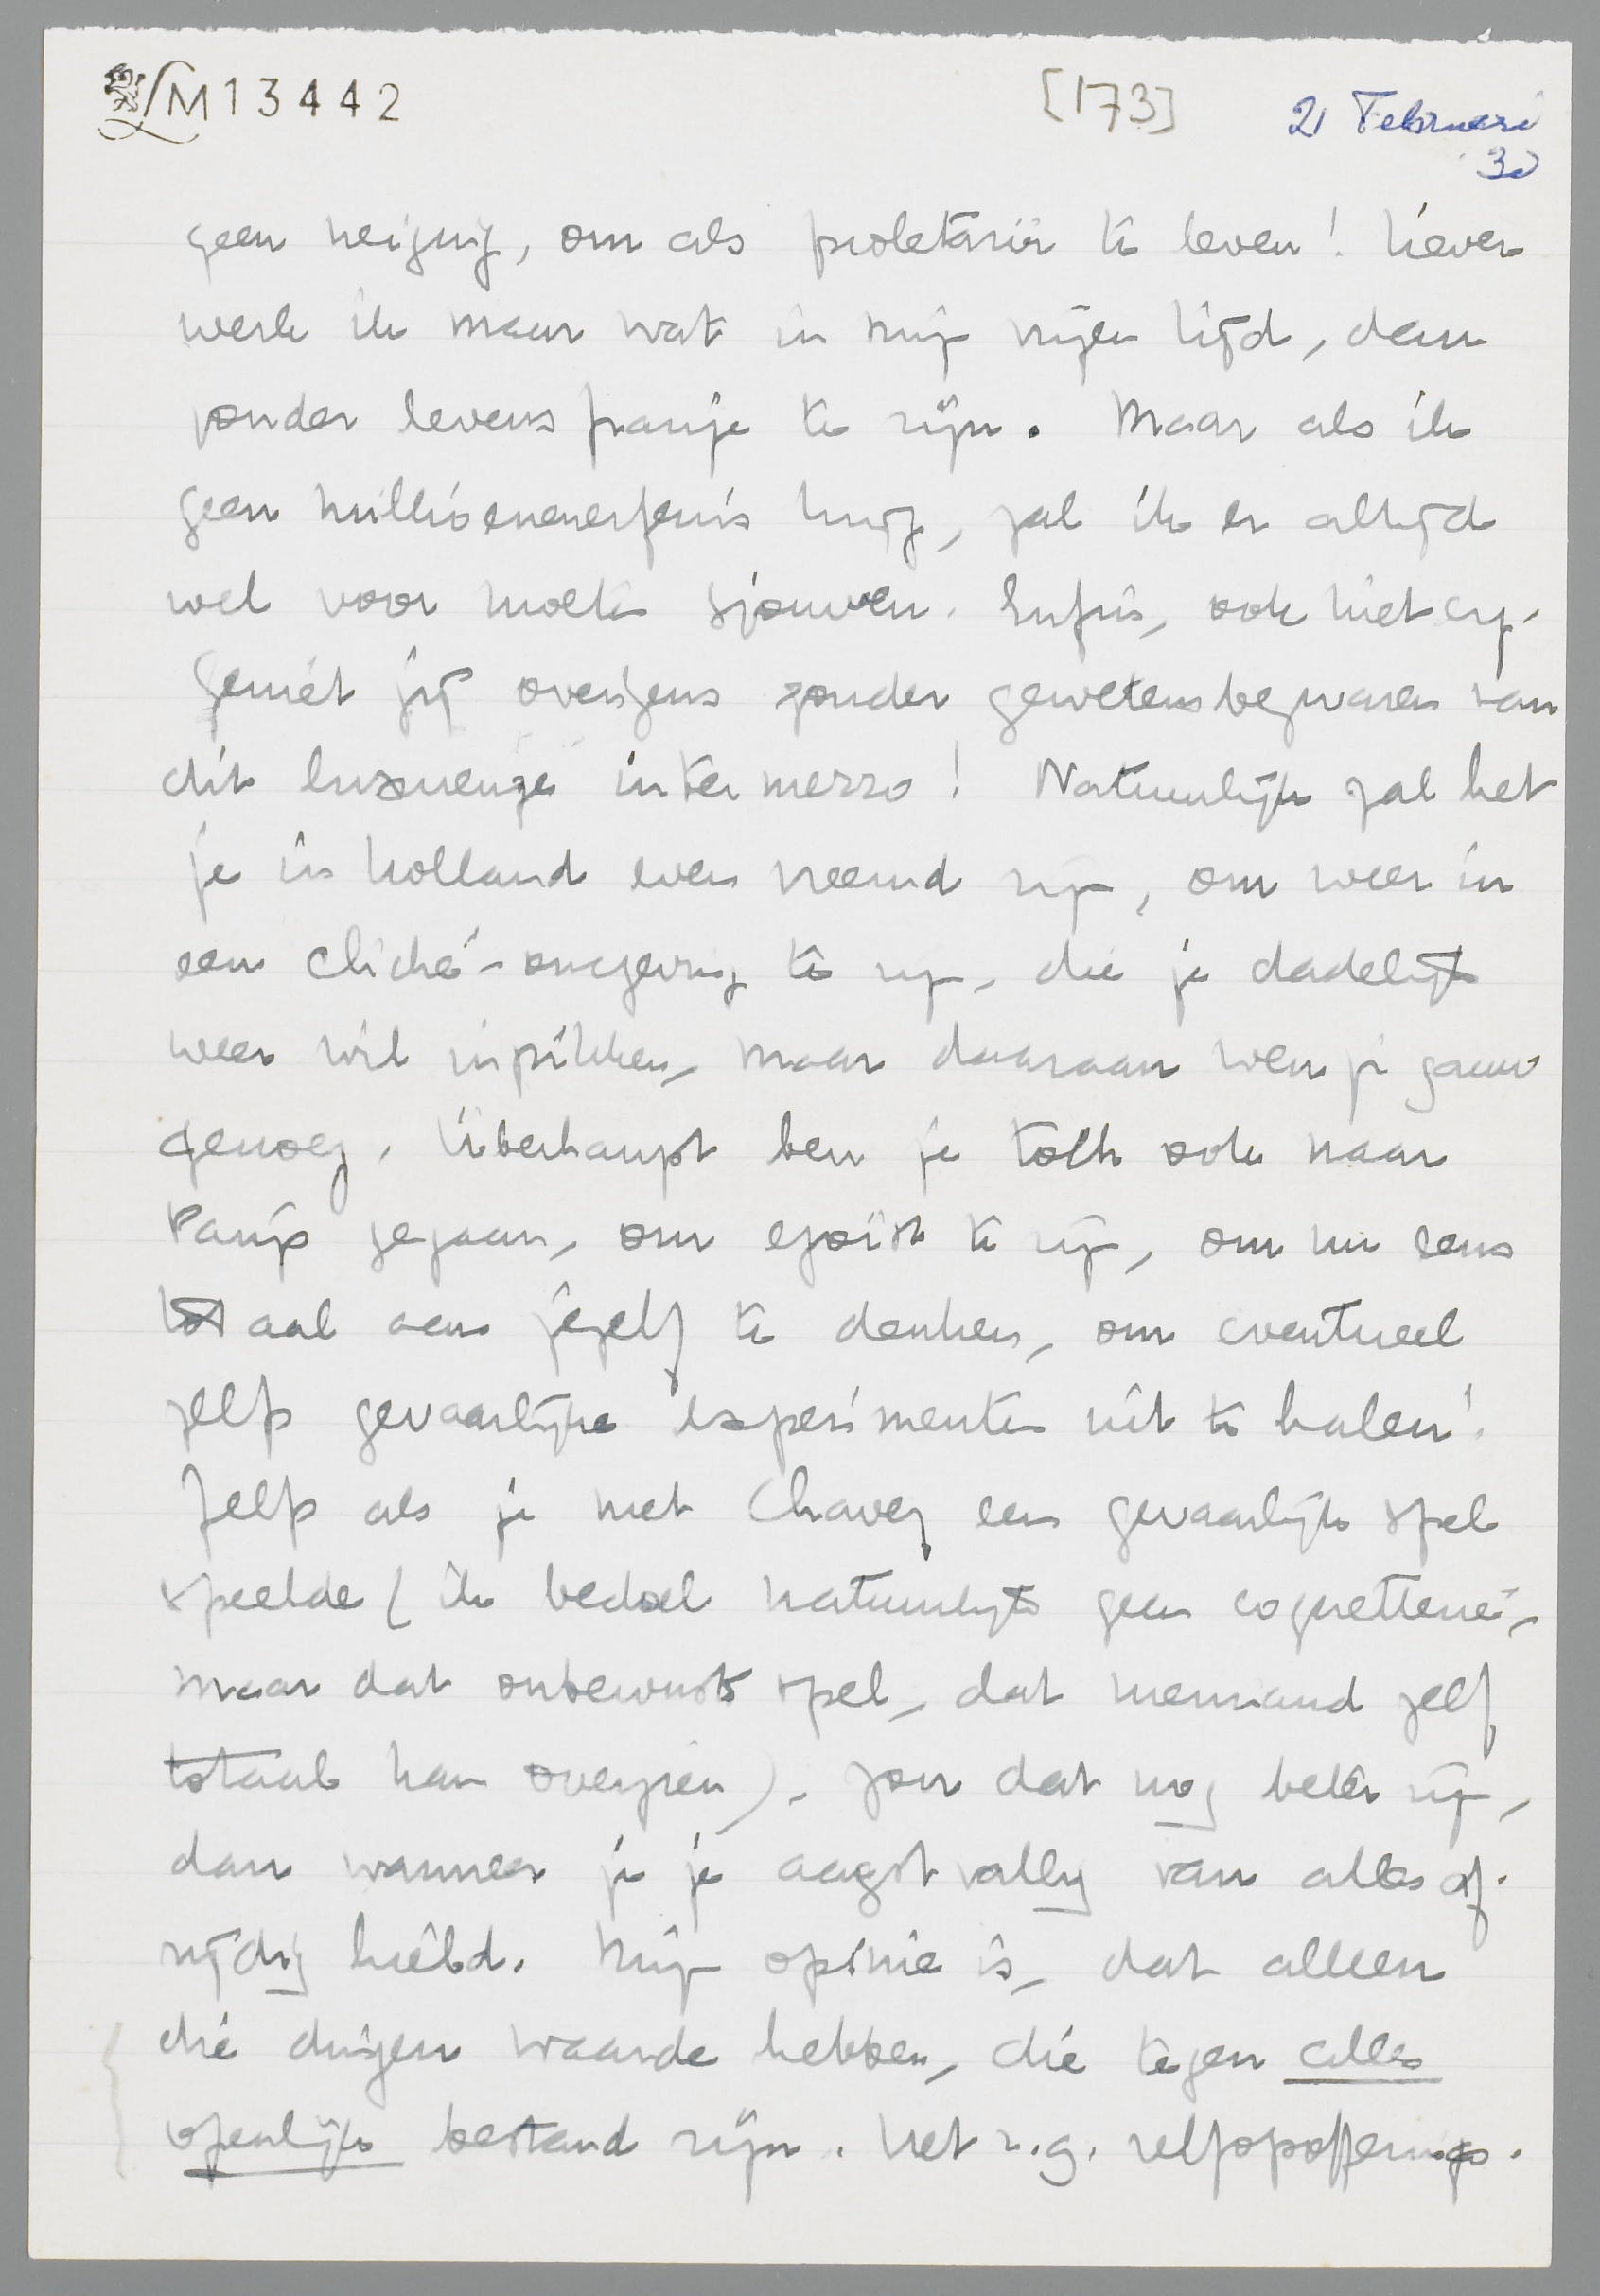 LM13442
[173]
21 Februari
30
geen neiging, om als proletariër te leven! Liever
werk ik maar wat in mijn vrijen tijd, dan
zonder levensfranje te zijn. Maar als ik
geen millioenenerfenis krijg, zal ik er altijd
wel voor moeten sjouwen. Enfin, ook niet erg.
Geniét jij overigens zonder gewetensbezwaren van
dit luxueuze intermezzo! Natuurlijk zal het
je in Holland even vreemd zijn, om weer in
een cliché-omgeving te zijn, die je dadelijk
weer wil inpikken, maar daaraan wen je gauw
genoeg. Überhaupt ben je toch ook naar
Parijs gegaan, om egoïst te zijn, om nu eens
totaal aan jezelf te denken, om eventueel
zelfs gevaarlijke experimenten uit te halen!
Zelfs als je met Chavez een gevaarlijk spel
speelde (ik bedoel natuurlijk geen coquetterie,
maar dat onbewuste spel, dat niemand zelf
totaal kan overzien), zou dat nog beter zijn,
dan wanneer je je angstvallig van alles af-
zijdig hield. Mijn opinie is, dat alleen
die dingen waarde hebben, die tegen alles
openlijk bestand zijn. Het z.g. zelfopofferings-